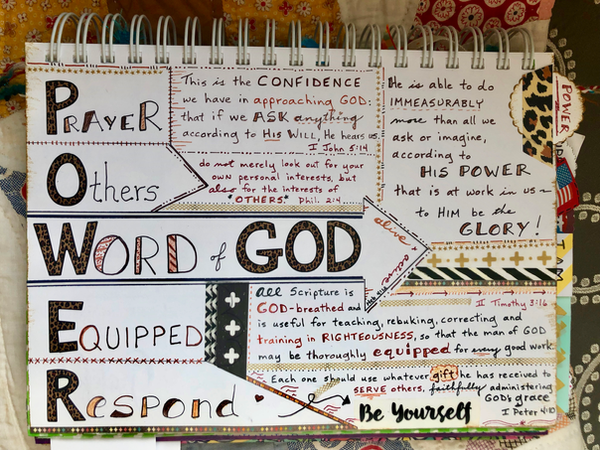 PRAYER
This is the CONFIDENCE
we have in approaching GOD:
that if we ASK anything
according to His WILL, He hears us.
I John 5:14
He is able to do
IMMEASURABLY
more than all we
ask or imagine,
according to
His POWER
that is at work in us~
to HIM be the
GLORY!
POWER
Others
do not merely look out for your
own personal interests, but
also for the interests of
"OTHERS." Phil. 2:4
WORD of GOD
alive + active
EQUIPPED
All Scripture is
II Timothy 3:16
GOD-breathed and
is useful for teaching, rebuking, correcting and
training in RIGHTEOUSNESS, so that the man of GOD
may be thoroughly equipped for every good work.
Respond
Each one should use whatever gift he has received to
SERVE others, faithfully administering
GOD's grace
I Peter 4:10
Be Yourself